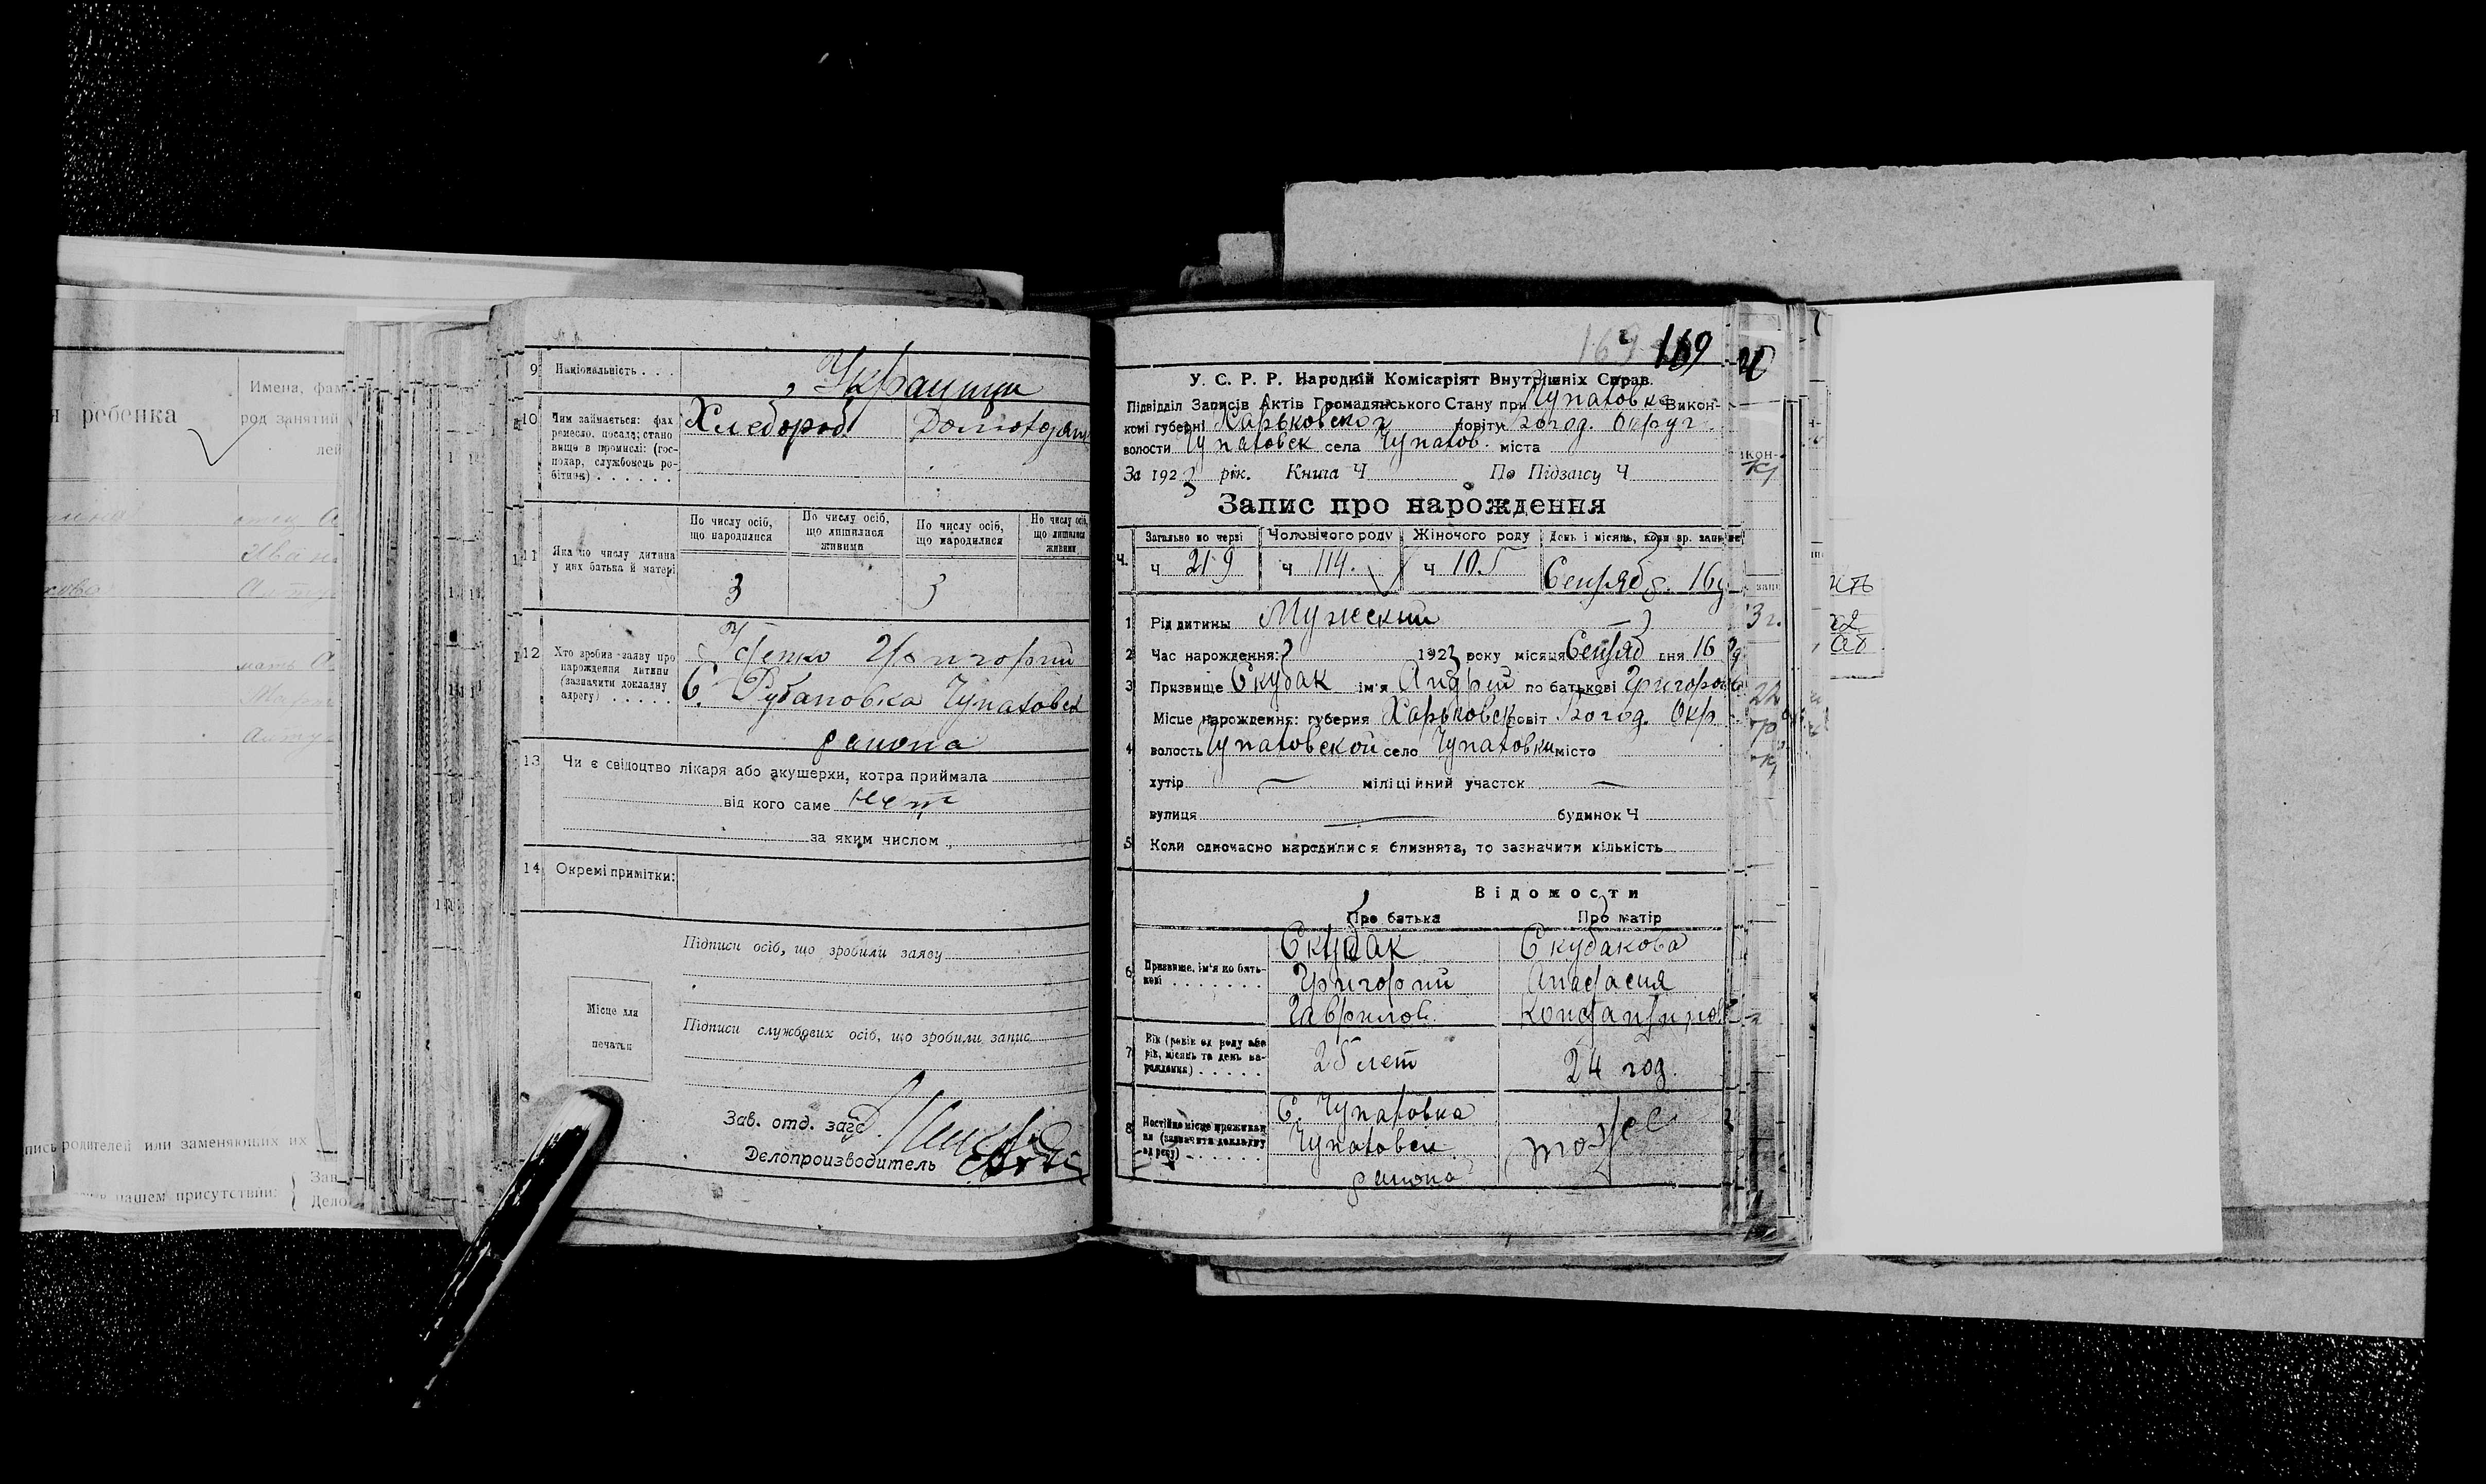 я ребенка
Имена, фам
род занятий
лей
отец
Иван
мать
пись родителей или заменяющих их
нашем присутствии:
Зав
Дело
9 Національність . . . Украинцы
10 Чим займається: фах
ремесло, посада; стано
вище в промислі: (гос-
подар, службовець ро-
бітник) . . . . . .
Хлебороб
11 Яка по числу дитина
у цих батька й матері
По числу осіб,
що народилися
По числу осіб,
що лишилися
живими
По числу осіб,
що народилися
По числу осіб,
що лишилися
живими
3 3
12 Хто зробив заяву про
нарождення дитини
(зазначити докладну
адресу) . . . . .
Григорий
С.
района
13 Чи є свідоцтво лікаря або акушерки, котра приймала
від кого саме нет
за яким числом
14 Окремі примітки:
Підписи осіб, що зробили заяву
Місце для
печатки
Підписи службових осіб, що зробили запис
Зав. отд. загс
Делопроизводитель
169 169
У. С. Р. Р. Народній Комісаріят Внутрішніх Справ.
Підвідділ Записів Актів Громадянського Стану при Чупаховке Викон-
комі губерні Харьковской повіту Богод. Округ.
волости Чупаховск села Чупахов. міста
За 1923 рік. Книга Ч По Підзапису Ч
Запис про нарождення
Ч. Загально по черзі Чоловічого роду Жіночого роду День і місяць, коли зр. запис
ч 219 ч 114. ч 105 Сентяб. 16
1 Рід дитини Мужский
2 Час нарождення: 1923 року місяця Сентяб дня 16
3 Призвище Скубак ім'я Андрей по батькові Григоров
4 Місце нарождення: губерня Харьковск повіт Богод. Окр
волость Чупаховской село Чупаховки місто
хутір — міліційний участок —
вулиця — будинок Ч
5 Коли одночасно народилися близнята, то зазначити кількість
Відомости
Про батька Про матір
6 Призвище, ім'я по бать-
кові . . . . . . .
Скубак Скубакова
Григорий Анастасия
Гаврилов. Константинов
7 Вік (років од роду або
рік, місяць та день на-
рождення) . . . . .
25 лет 24 год.
8 Постійне місце проживан
ня (зазначити докладну
адресу) . . . . . .
С. Чупаховка
Чупаховск.
района
тоже